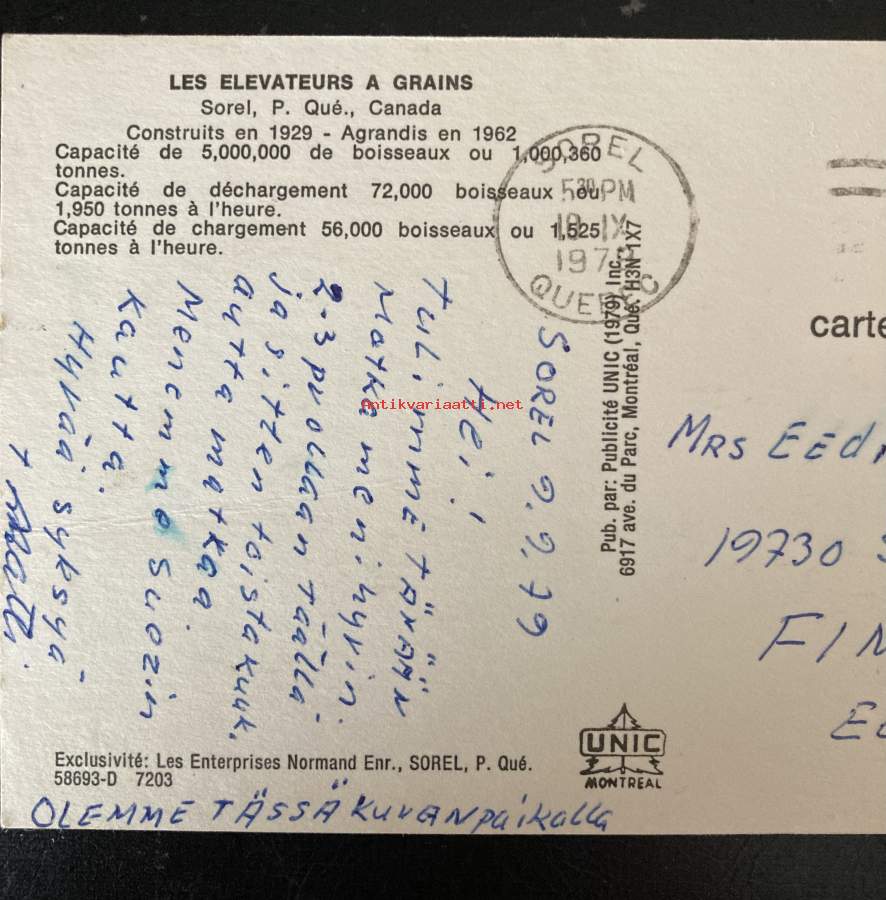 LES ELEVATEURS A GRAINS
Sorel, P. Qué., Canada
Construits en 1929 - Agrandis en 1962
Capacité de 5,000,000 de boisseaux ou 1,000,360
tonnes.
Capacité de déchargement 72,000 boisseaux ou
1,950 tonnes à l'heure.
Capacité de chargement 56,000 boisseaux ou 1,525
tonnes à l'heure.
SOREL
5 30 PM
IX
197
QUEBEC
SOREL 9.9.79
Hei!
tulimme TÄNÄÄN
Matka meni hyvin.
2-3 prullaan täällä
ja sitten toista kuuk.
autta matkaa
Menemme Suezin
kautta.
Hyvää syksyä
t Matti
Pub. par: Publicité UNIC (1979) Inc.
6917 ave. du Parc, Montréal, Qué. H3N 1X7
carte
MRS EEd
19730
FIN
Antikvariaatti.net
UNIC
MONTREAL
Exclusivité: Les Enterprises Normand Enr., SOREL, P. Qué.
58693-D 7203
OLEMME TÄSSÄ KUVAN paikalla